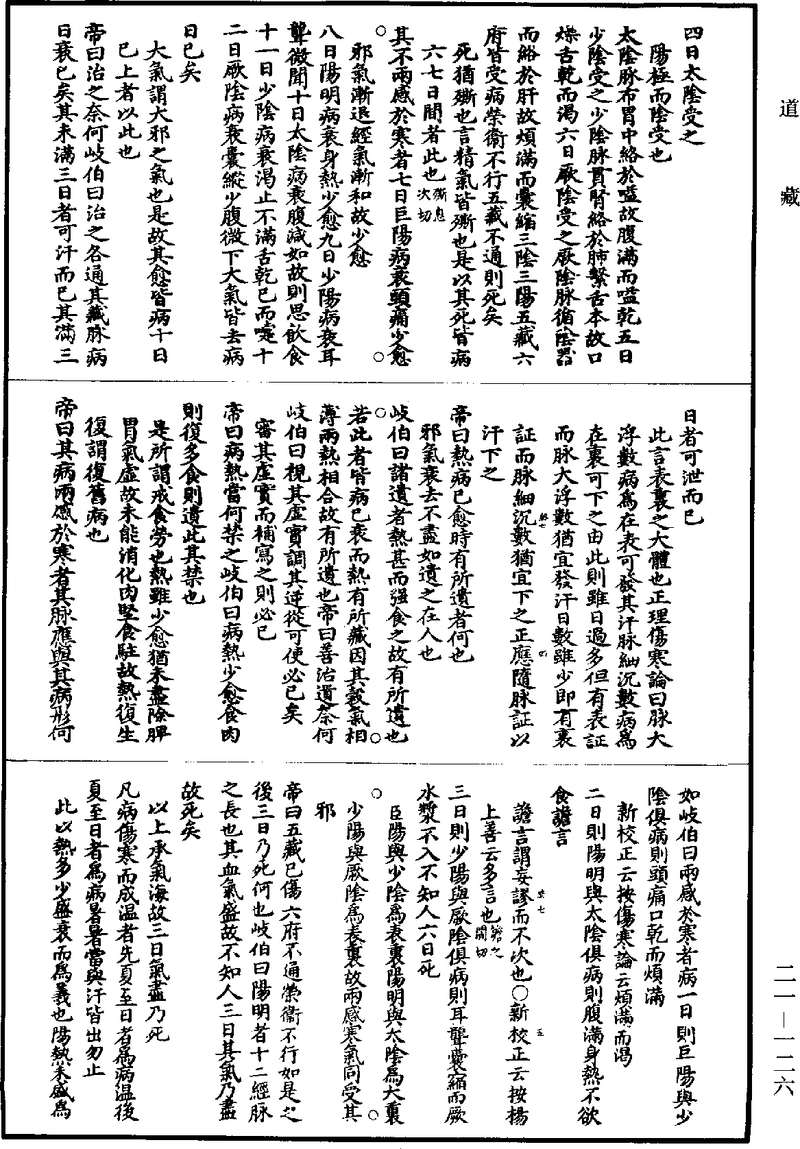 道藏
四日太陰受之
陽極而陰受也
太陰脉布胃中絡於嗌故腹滿而嗌乾五日
少陰受之少陰脉貫腎絡於肺繫舌本故口
燥舌乾而渴六日厥陰受之厥陰脉循陰器
而絡於肝故煩滿而囊縮三陰三陽五藏六
府皆受病榮衛不行五藏不通則死矣
死猶澌也言精氣皆澌也是以其死皆病
六七日間者此也澌息次切
其不兩感於寒者七日巨陽病衰頭痛少愈
邪氣漸退經氣漸和故少愈
八日陽明病衰身熱少愈九日少陽病衰耳
聾微聞十日太陰病衰腹減如故則思飲食
十一日少陰病衰渴止不滿舌乾已而嚏十
二日厥陰病衰囊縱少腹微下大氣皆去病
日已矣
大氣謂大邪之氣也是故其愈皆病十日
已上者以此也
帝曰治之奈何歧伯曰治之各通其藏脉病
日衰已矣其未滿三日者可汗而已其滿三
日者可泄而已
此言表裏之大體也正理傷寒論曰脉大
浮數病為在表可發其汗脉細沉數病為
在裏可下之由此則雖日過多但有表証
而脉大浮數猶宜發汗日數雖少即有裏
証而脉細沉數猶宜下之正應隨脉証以
汗下之
帝曰熱病已愈時有所遺者何也
邪氣衰去不盡如遺之在人也
歧伯曰諸遺者熱甚而强食之故有所遺也
若此者皆病已衰而熱有所藏因其穀氣相
薄兩熱相合故有所遺也帝曰善治遺奈何
歧伯曰視其虛實調其逆從可使必已矣
審其虛實而補寫之則必已
帝曰病熱當何禁之歧伯曰病熱少愈食肉
則復多食則遺此其禁也
是所謂戒食勞也熱雖少愈猶未盡除脾
胃氣虛故未能消化肉堅食駐故熱復生
復謂復舊病也
帝曰其病兩感於寒者其脉應與其病形何
如歧伯曰兩感於寒者病一日則巨陽與少
陰俱病則頭痛口乾而煩滿
新校正云按傷寒論云煩滿而渴
二日則陽明與太陰俱病則腹滿身熱不欲
食譫言
譫言謂妄謬而不次也○新校正云按楊
上善云多言也譫之閻切
三日則少陽與厥陰俱病則耳聾囊縮而厥
水漿不入不知人六日死
巨陽與少陰為表裏陽明與太陰為表裏
少陽與厥陰為表裏故兩感寒氣同受其
邪
帝曰五藏已傷六府不通榮衛不行如是之
後三日乃死何也歧伯曰陽明者十二經脉
之長也其血氣盛故不知人三日其氣乃盡
故死矣
以上承氣海故三日氣盡乃死
凡病傷寒而成温者先夏至日者為病温後
夏至日者為病暑暑當與汗皆出勿止
此以熱多少盛衰而為義也陽熱未盛為
二一—一二六